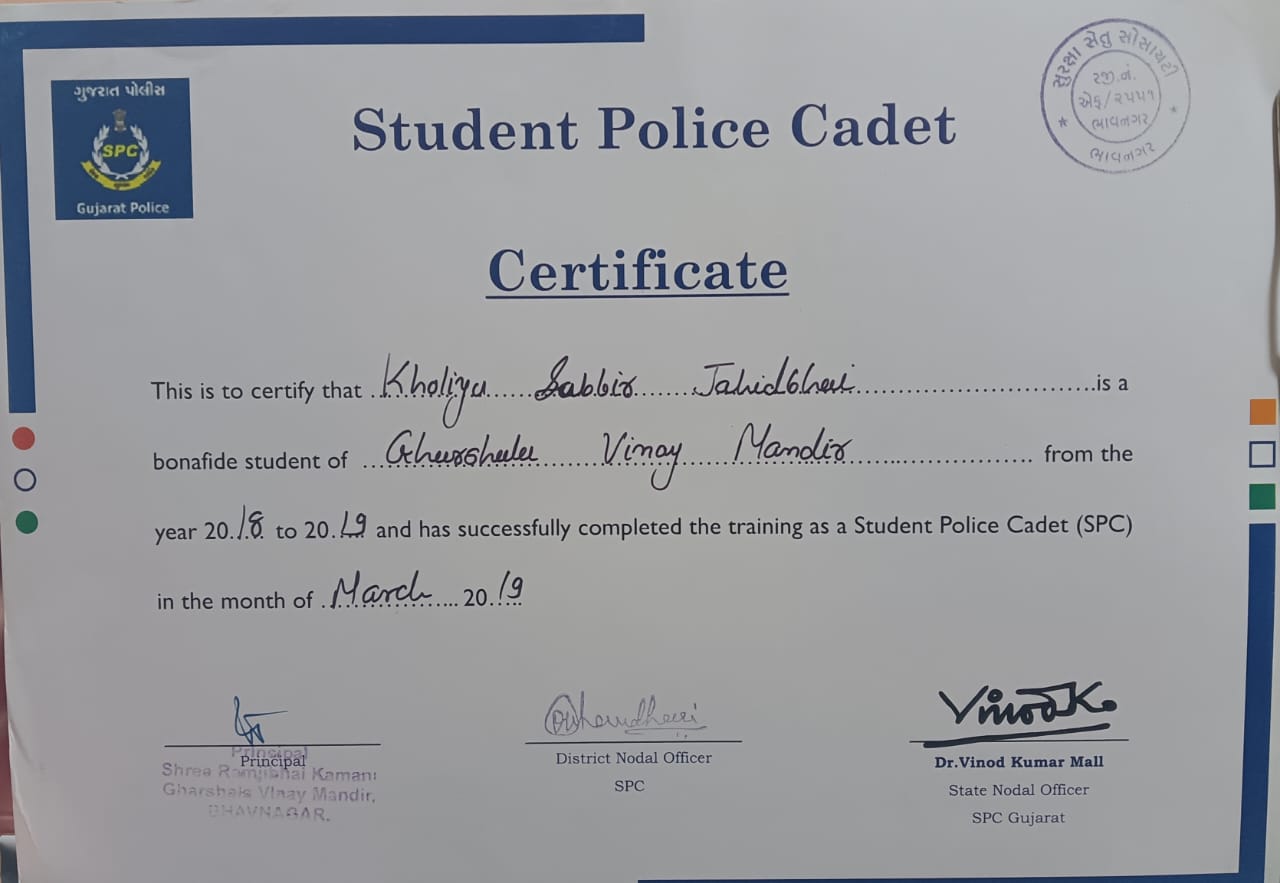 ગુજરાત પોલીસ
SPC
Gujarat Police
સુરક્ષા સેતુ સોસાયટી
રજી.નં.
એફ/૨૫૫૧
ભાવનગર
ભાવનગર
Student Police Cadet
Certificate
This is to certify that Kholiya Sabbir Jahidbhai is a
bonafide student of Gharshala Vinay Mandir from the
year 2018 to 2019 and has successfully completed the training as a Student Police Cadet (SPC)
in the month of March 2019
Principal
Principal
Shree Ramjibhai Kamani
Gharshala Vinay Mandir,
BHAVNAGAR.
District Nodal Officer
SPC
VinodK.
Dr.Vinod Kumar Mall
State Nodal Officer
SPC Gujarat